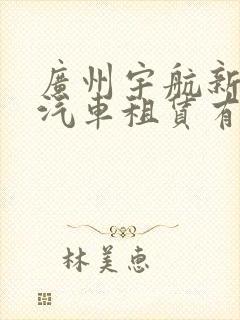 廣州宇航新
汽車租賃有
林美惠